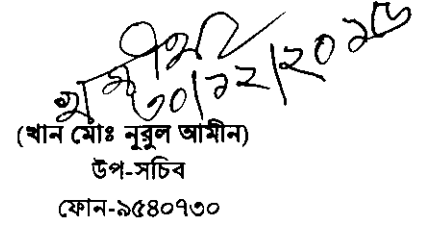 ৩০/১২/২০১৬
(খান মোঃ নূরুল আমীন)
উপ-সচিব
ফোন-৯৫৪০৭৩০